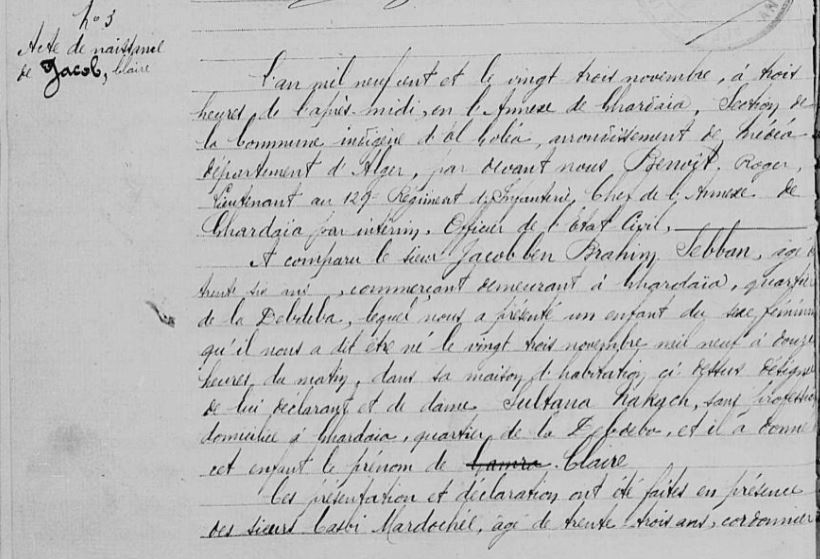 N° 3
Acte de naissance
de Jacob, Claire
L'an mil neuf cent et le vingt trois novembre, à trois
heures de l'après-midi, en l'Annexe de Ghardaïa, Section de
la Commune indigène d'El Goléa, arrondissement de Médéa
département d'Alger, par devant nous Benoit, Roger,
Lieutenant au 129e Régiment d'Infanterie, Chef de l'Annexe de
Ghardaïa par intérim, Officier de l'Etat Civil,
A comparu le sieur Jacob ben Brahim Sebban, âgé d
trente six ans, commerçant demeurant à Ghardaïa, quartier
de la Debdeba, lequel nous a présenté un enfant du sexe féminin
qu'il nous a dit être né le vingt trois novembre mil neuf à douze
heures du matin, dans sa maison d'habitation ci dessus désigné
de lui déclarant et de dame Sultana Nakach, sans profession
domiciliée à Ghardaia, quartier de la Debdeba, et il a donné
cet enfant le prénom de Claire
Ces présentation et déclaration ont été faites en présence
des sieurs Casbi Mardochée, âgé de trente-trois ans, cordonnier